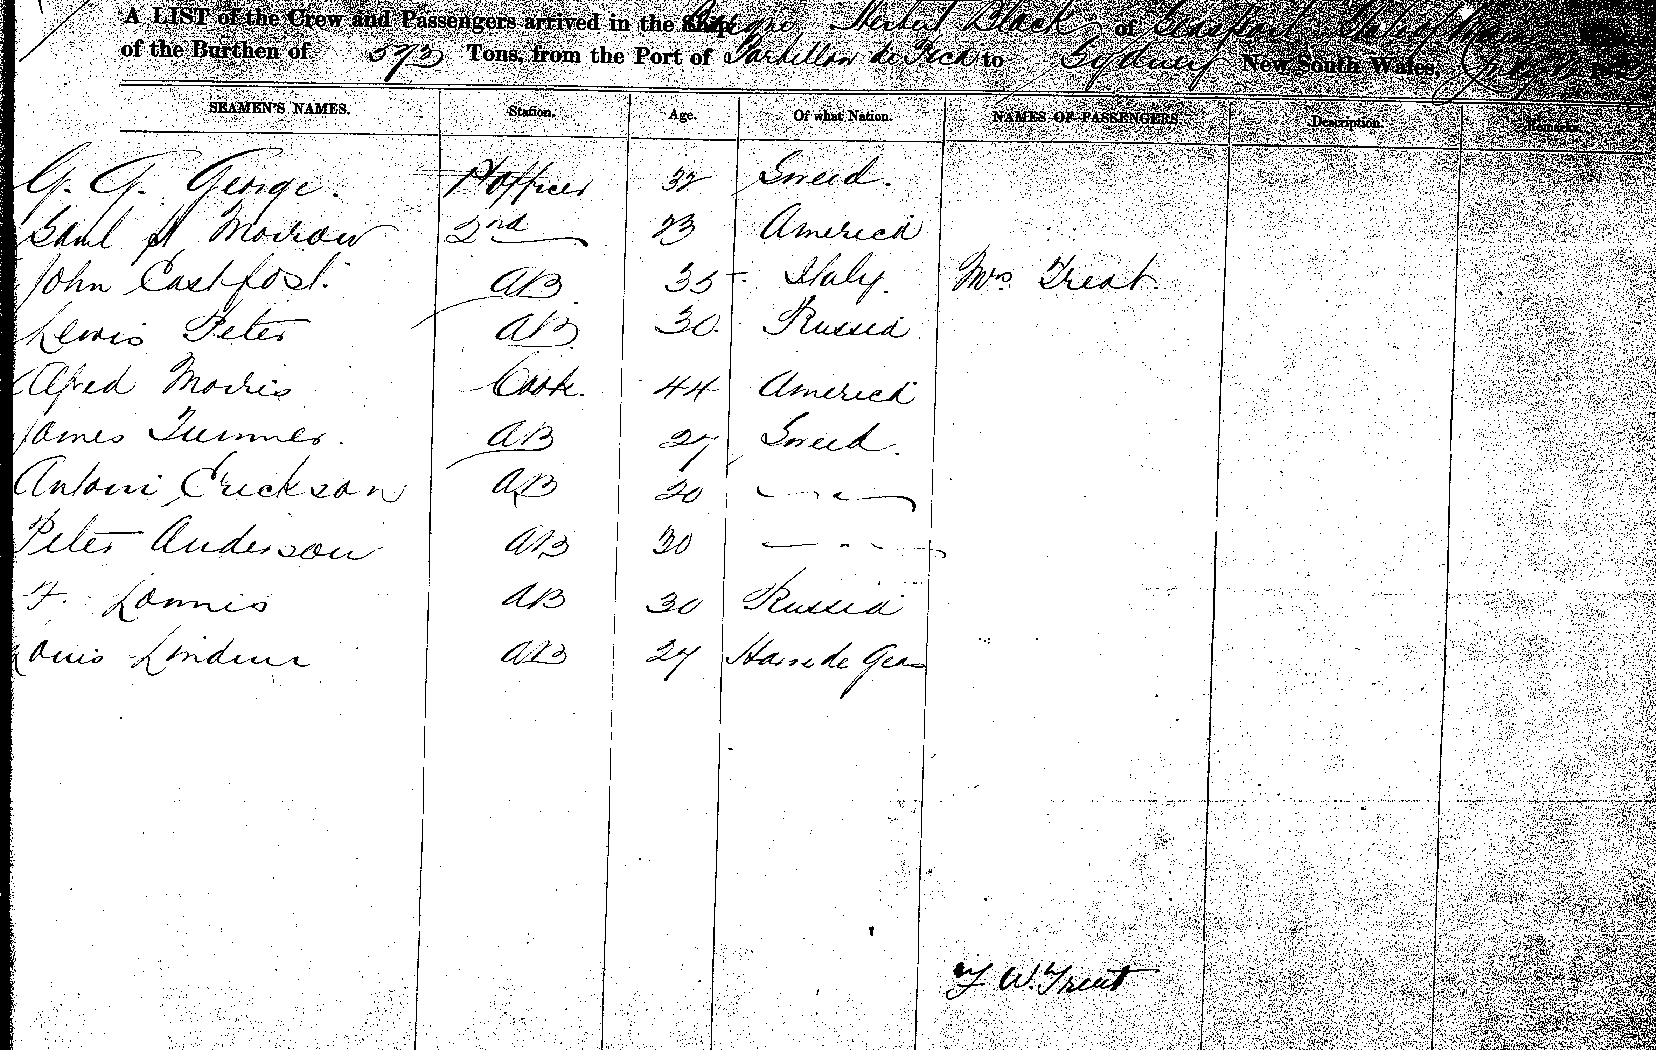 A LIST of the Crew and Passengers arrived in the Ship Herbert Black of
of the Burthen of 573 Tons, from the Port of to Sydney New South Wales,
SEAMEN'S NAMES. Station. Age. Of what Nation. NAMES OF PASSENGERS. Description. Remarks.
G. G. George. officer 32 Sweed.
A Morrow 2nd 23 America
John Eastfost. AB. 35 Italy. Mrs. Treat.
Lewis Peter AB 30. Russia
Alfred Morris Cook. 44 America
James Turner. AB 27 Sweed.
Antoni Erickson AB 20 — " —
Peter Anderson AB 30 — " —
F. Lannis AB 30 Russia
Louis AB 27
W. Treat